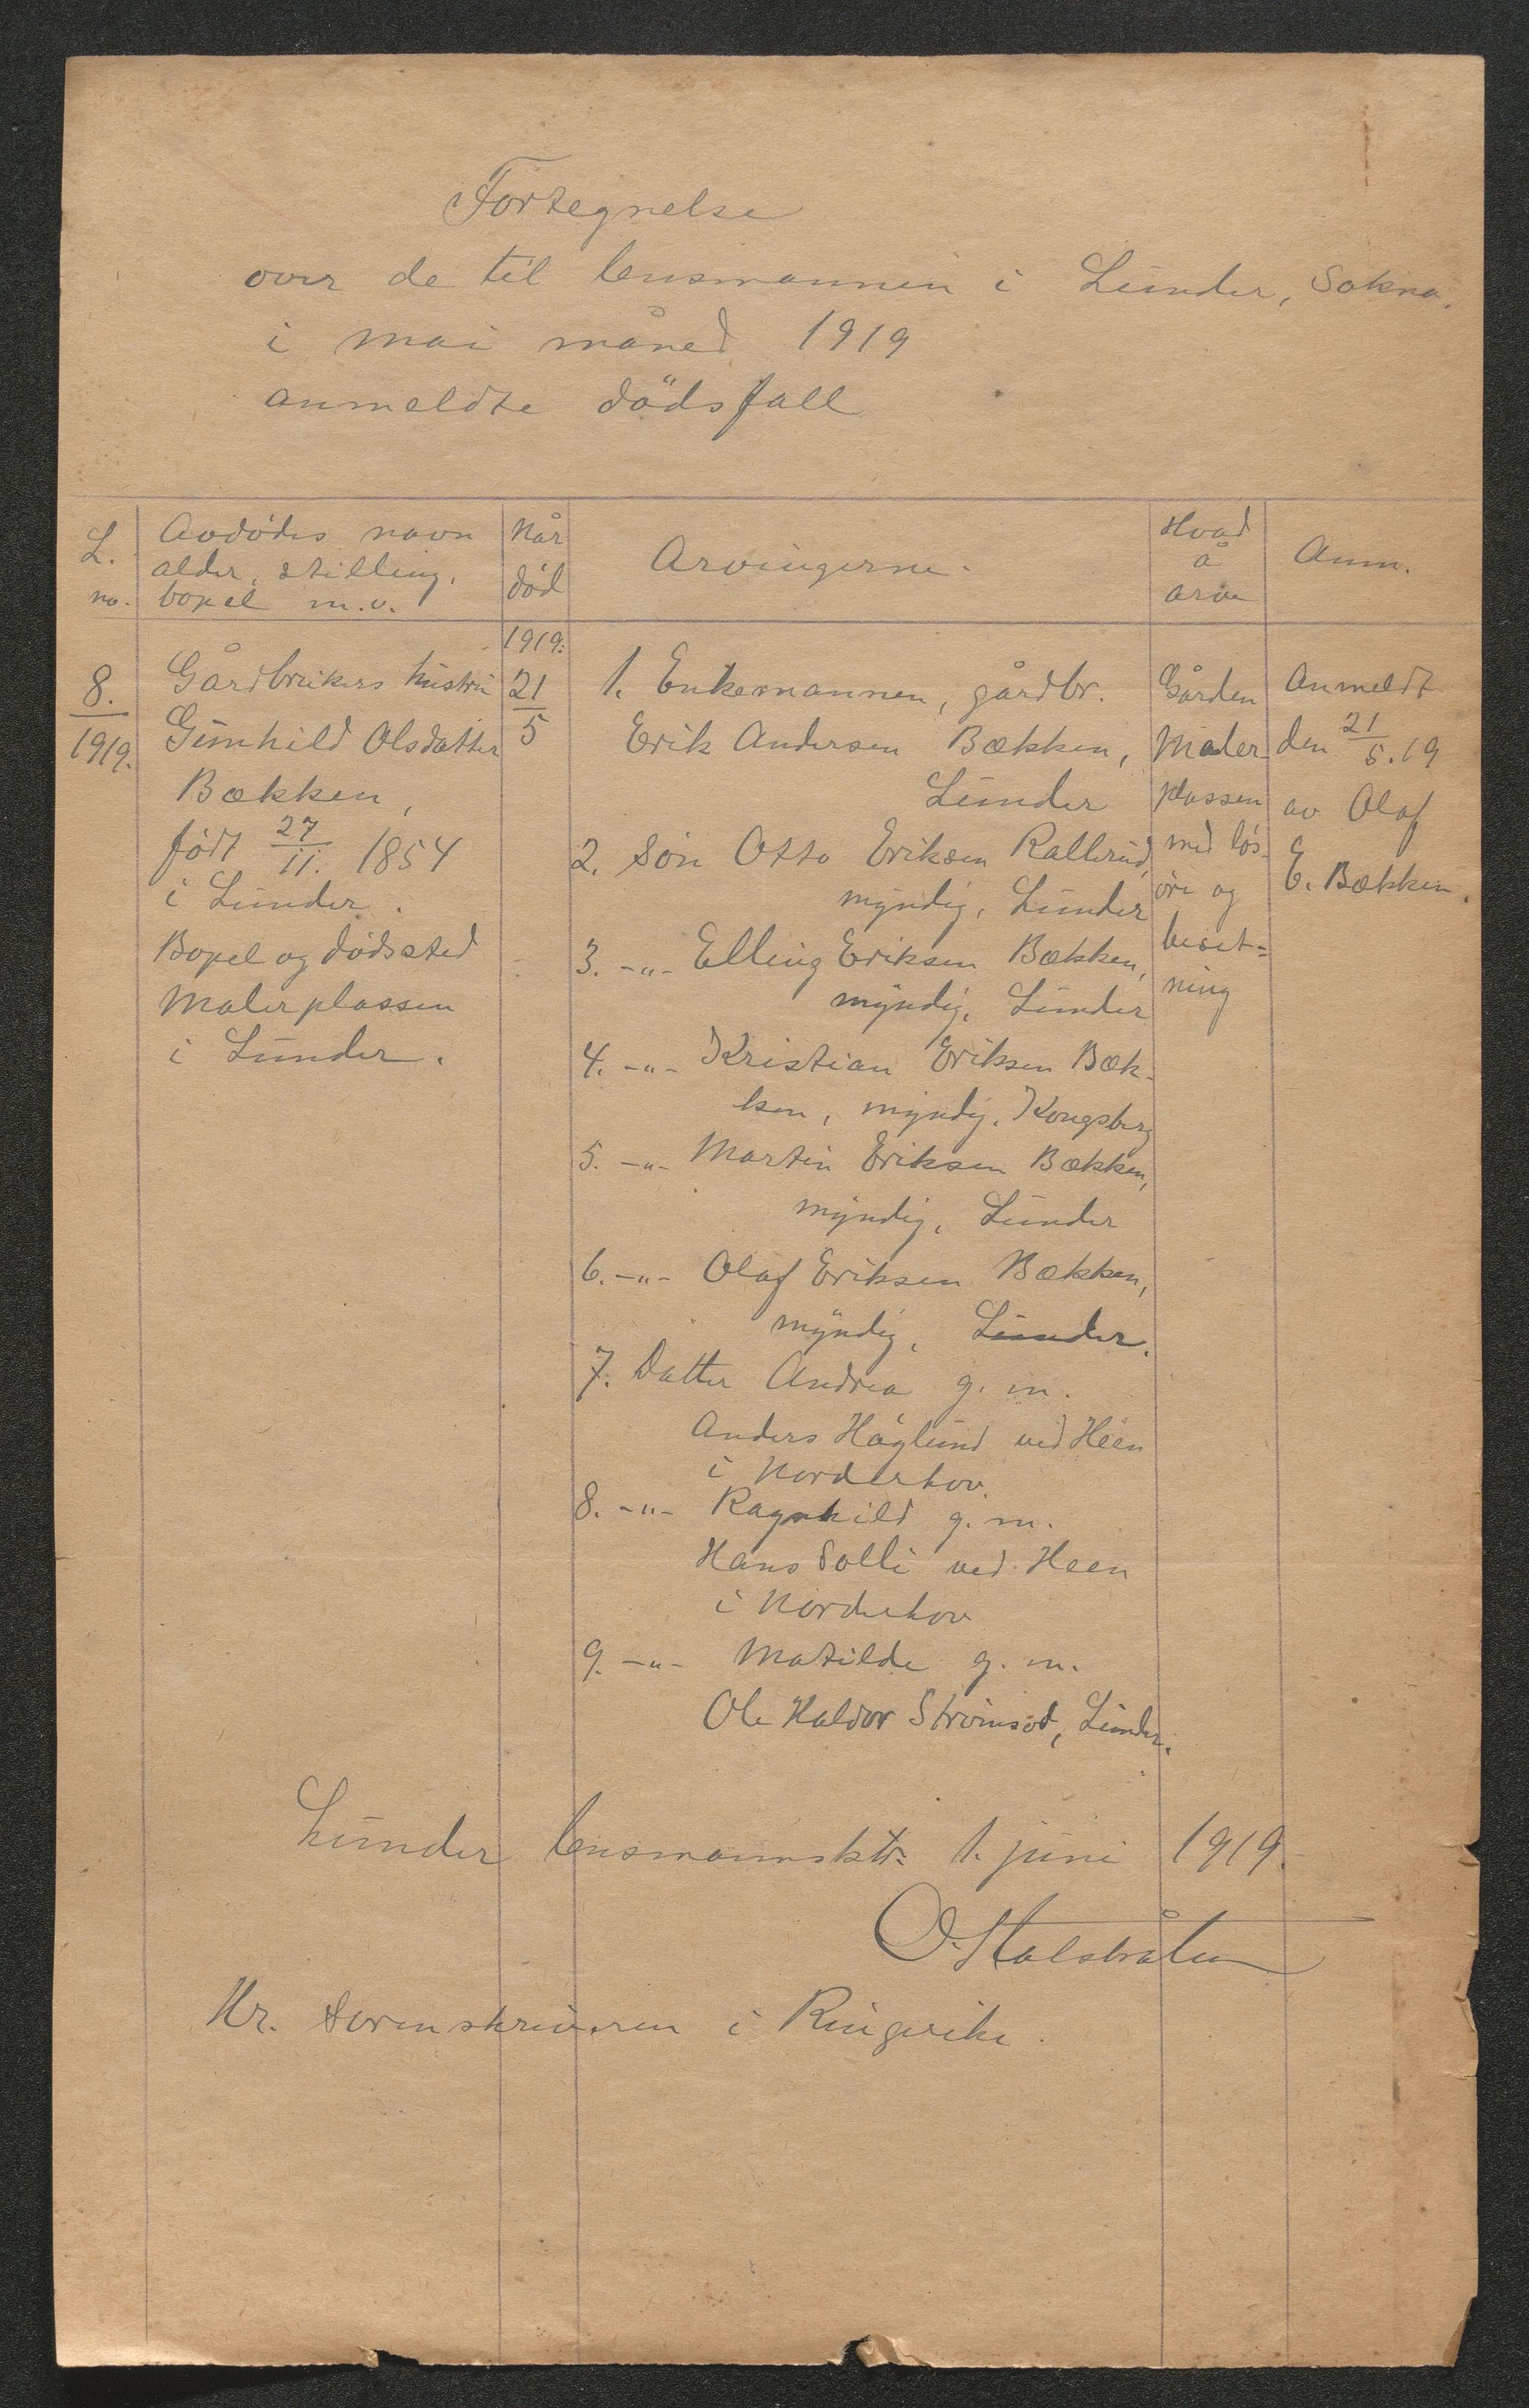 Fortegnelse
over de til lensmannen i Lunder, Sokna,
i mai måned 1919
anmeldte dödsfall
L. no.
Avdödes navn
alder, stilling,
bopel m.v.
Når
död
Arvingerne.
Hvad
å
arve
Anm.
8.
1919.
Gårdbrukers hustru
Gunhild Olsdatter
Bækken,
födt 27/11. 1854
i Lunder.
Bopel og dödssted
Malerplassen
i Lunder.
1919.
21/5
1. Enkemannen, gårdbr.
Erik Andersen Bækken,
Lunder
2. Sön Otto Eriksen Rallerud,
myndig, Lunder
3. -"- Elling Eriksen Bækken,
myndig, Lunder
4. -"- Kristian Eriksen Bæk-
ken, myndig, Kongsberg
5. -"- Martin Eriksen Bækken,
myndig, Lunder
6. -"- Olaf Eriksen Bækken,
myndig, Lunder.
7. Datter Andrea g. m.
Anders Höglund ved Heen
i Norderhov.
8. -"- Ragnhild g. m.
Hans Solli ved Heen
i Norderhov
9. -"- Matilde g. m.
Ole Haldor Strömsod, Lunder.
Gården
Maler-
plassen
med lös-
öre og
beset-
ning
Anmeldt
den 21/5.19
av Olaf
E. Bækken.
Lunder lensmannsktr. 1. juni 1919.
Hr. Sorenskriveren i Ringerike.